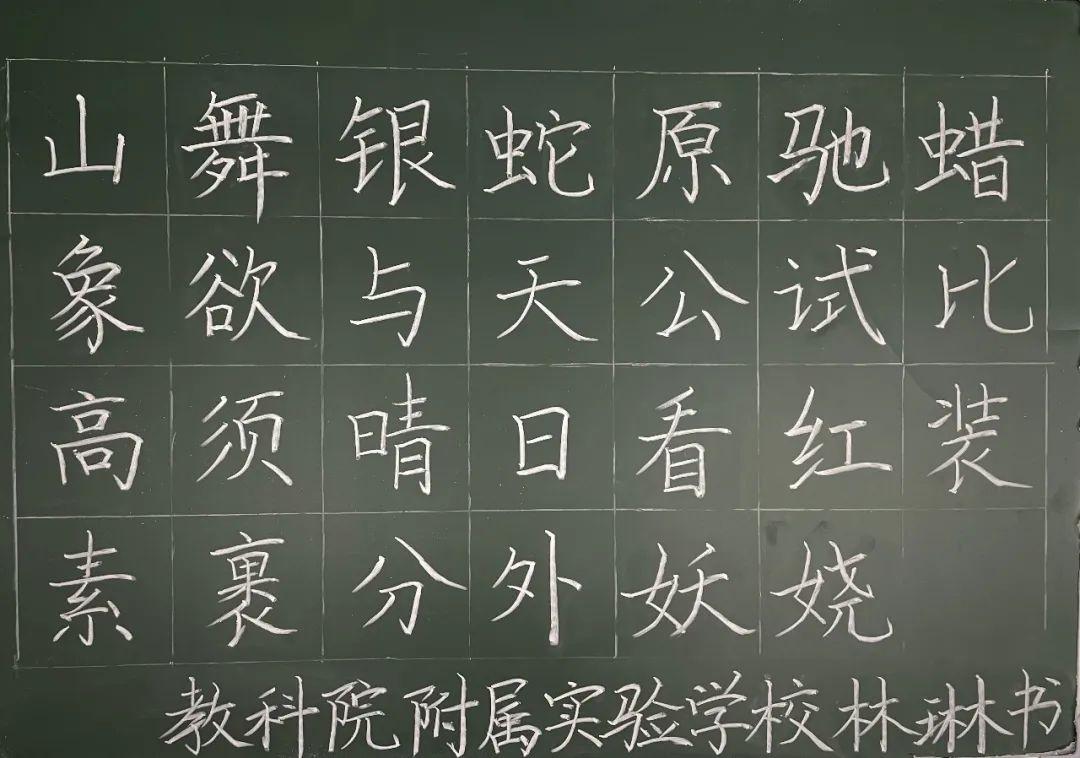 山舞银蛇原驰蜡
象欲与天公试比
高须晴日看红装
素裹分外妖娆
教科院附属实验学校林琳书